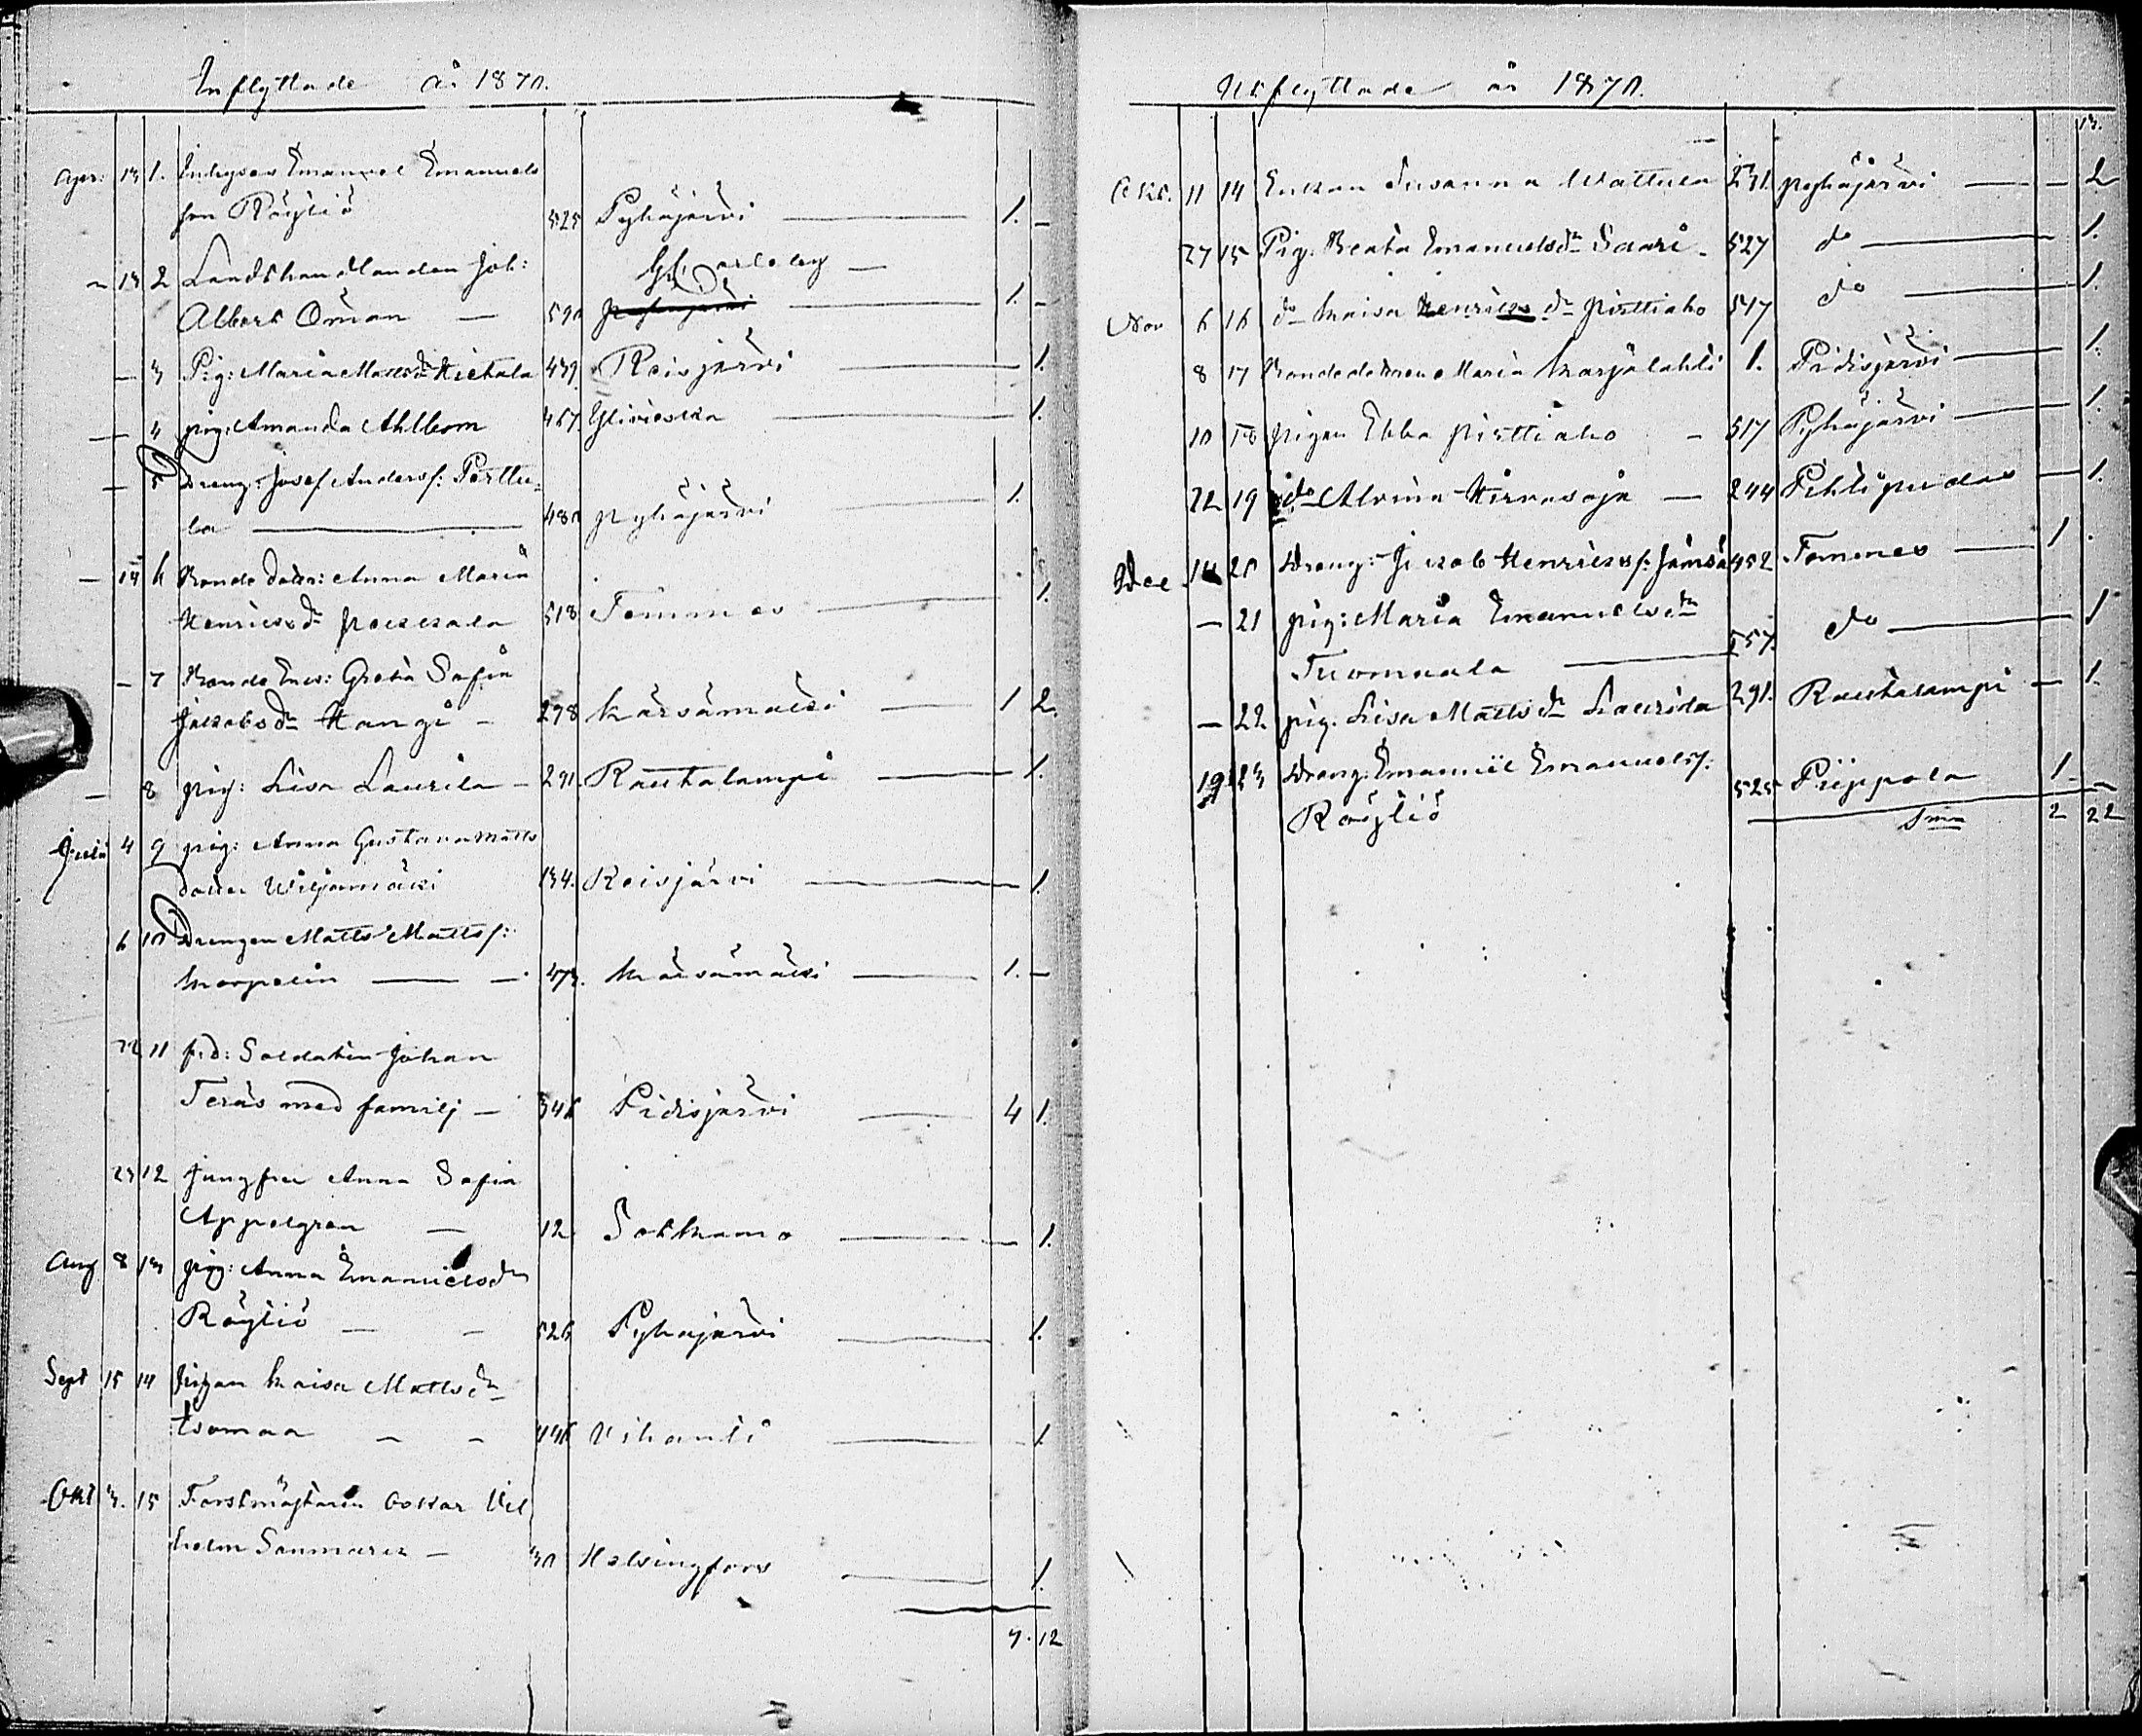 Inflyttade år 1870.
Apr: 13 1. Inhyses Emanuel Emanuels
son Räyliö 525 Pyhäjärvi 1. -
13 2 Landthandlanden Joh:
Albert Öman - 590 Pyhäjärvi Gl Carleby 1. -
- 3 Pig: Maria Mattsdr Hietala 439 Reisjärvi 1.
- 4 pig: Amanda Ahlbom 467. Ylivieska 1.
- 5 Dreng: Josef Anders s: Perttu-
la 480 Pyhäjärvi 1.
- 14 6 Bonde Dotter: Anna Maria
Henricsdr 518 Temmes 1.
- 7 Bonde Enk: Greta Sofia
Jakobsdr Kangi - 298 Kärsämäki 1 2.
- 8 pig: Lisa Laurila - 291. Rautalampi 1.
Juli 4 9 pig: Anna Gustava Matts
dotter Wiljamäki 134. Reisjärvi 1.
6 10 Drengen Matts Matts s:
473. Kärsämäki 1. -
22 11 f.d: Soldaten Johan
Teräs med familj - 346 Pidisjärvi 4 1.
23 12 Jungfru Anna Sofia
Appelgren - 12 Sotkamo 1.
Aug 8 13 pig: Anna Emanuelsdr
Räyliö - - 526 Pyhäjärvi 1.
Sept 15 14 Pigan Kaisa Mattsdr
Isomaa - - 446 Vihanti 1.
Okt 3. 15 Forstmästaren Oskar Vil
helm Sanmark - 30 Helsingfors 1.
9. 12
Utflyttade år 1870.
13.
Okt. 11 14 Enkan Susanna Wattula 231. Pyhäjärvi - 2
27 15 Pig. Beata Emanuelsdr Saari - 527 do 1.
Nov 6 16 do Kaisa Henricsdr Pirttiaho 517 do 1.
8 17 Bondedottren Maria Karjalahti 1. Pidisjärvi 1.
10 18 Pigan Ebba Pirttiaho - 517 Pyhäjärvi 1.
22 19 do Alvina Hirvasoja - 244 Pihtipudas 1.
Dec 14 20 Dreng: Jacob Henrics s: Jämsä 452 Temmes 1
- 21 pig: Maria Emanuelsdr
Tuomaala 557. do 1
- 22 pig. Lisa Mattsdr Laurila 291. Rautalampi 1.
19 23 Dreng: Emanuel Emanuels s:
Räyliö 525 Piippola 1 -
Sma 2 22